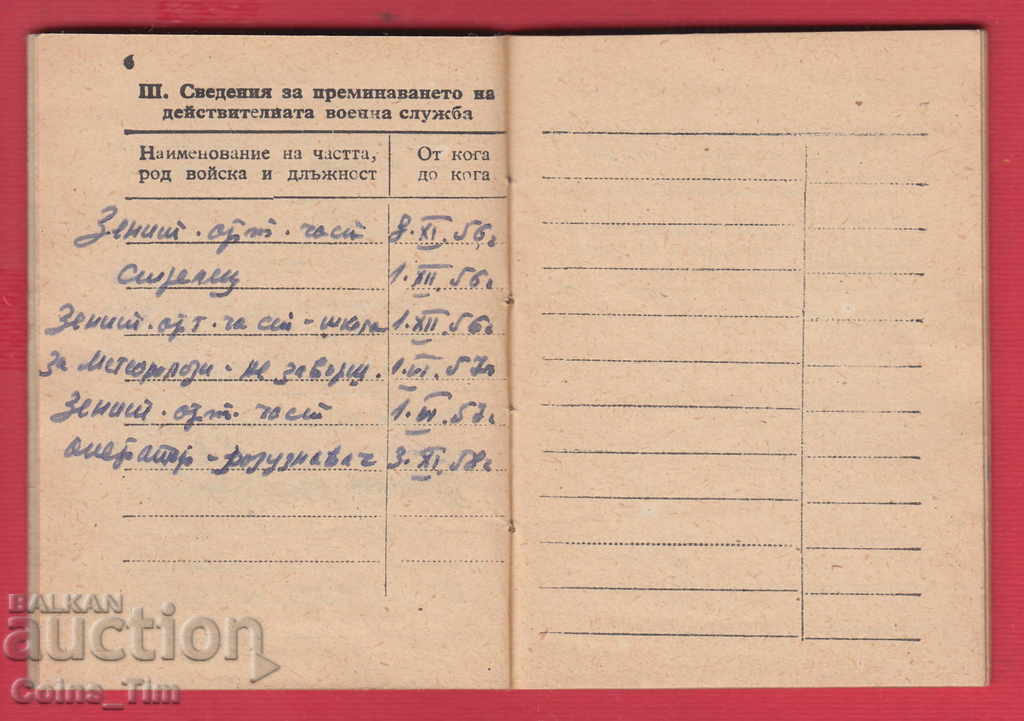 6
III. Сведения за преминаването на
действителната военна служба
Наименование на частта,
род войска и длъжност
От кога
до кога
Зенит. арт. част 8. XI. 56г
стрелец 1. XII. 56г.
Зенит. арт. част - школа 1. XII. 56г.
за метеоролози - не завърш. 1. VI. 57г
Зенит. арт. част 1. VI. 57г.
оператор - разузнавач 3. XI. 58г
BALKAN
auction
Coins_Tim